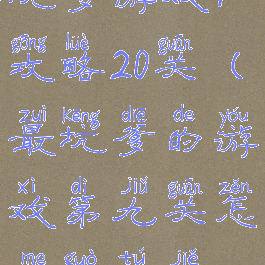 gōng lüè guān
攻略20关（
zuì kēng diē de yóu
最坑爹的游
xì dì jiǔ guān zěn
戏第九关怎
me guò tú jiě